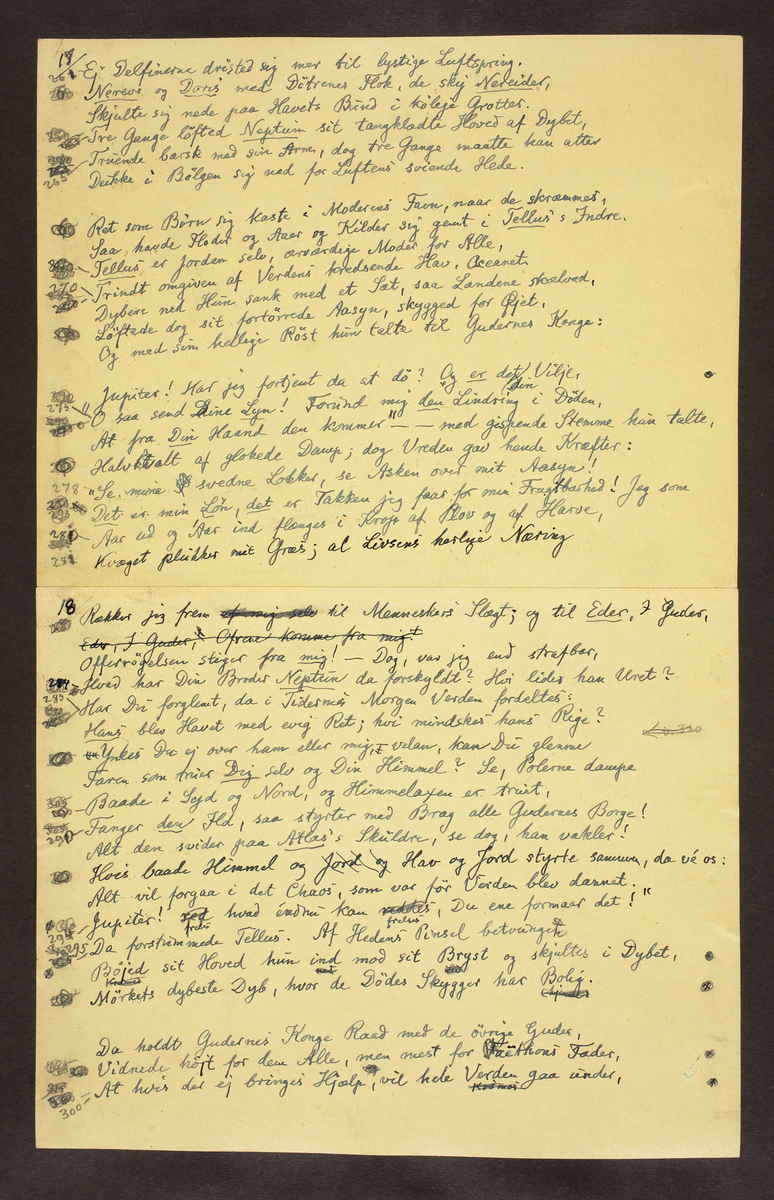 17
Ej Delfinerne dristed sig mer til lystige Luftspring.
Nereus og Doris med Dötrenes Flok, de skej Nereider,
Skjulte sig nede paa Havets Bund i kölige Grotter.
Tre Gange löfted Neptun sit tangklædte Hoved af Dybet,
Truende barsk med sin Arm, dog tre Gange maatte han atter
265
Dukke i Bölgen sig ned for Luftens sviende Hede.
Ret som Börn sig kaste i Moderens Favn, naar de skræmmes,
Saa havde Floder og Aaer og Kilder sig gemt i Tellus's Indre.
Tellus er Jorden selv, ærværdige Moder for Alle,
270
Trindt omgiven af Verdens kredsende Hav, Oceanet.
Dybere ned Hun sank med et Sæt, saa Landene skælved,
Löftede dog sit fortörrede Aasyn, skygged for Öjet,
Og med sin hellige Röst hun talte til Gudernes Konge:
"Jupiter! Har jeg fortjent da at dö? Og er det din Vilje,
275
O saa send Dine Lyn! Forund mig den Lindring i Döden,
At fra Din Haand den kommer" — — med gispende Stemme hun talte,
Halvkvalt af glohede Damp; dog Vreden gav hende Kræfter:
278
"Se mine svedne Lokker, se Asken over mit Aasyn!
Det er min Lön, det er Takken jeg faar for min Frugtbarhed! Jeg som
Aar ud og Aar ind flænges i Krop af Plov og af Harve,
281
Kvæget plukker mit Græs; al Livsens herlige Næring
18
Rækker jeg frem af mig selv til Menneskers Slægt; og til Eder, I Guder,
Eder, I Guder, Ofrene komme fra mig!
Offerrögelsen stiger fra mig! — Dog, var jeg end strafbar,
284
Hvad har Din Broder Neptun da forskyldt? Hvi lider han Uret?
285
Har Du forglemt, da i Tidernes Morgen Verden fordeltes:
Hans blev Havet med evig Ret; hvi mindskes hans Rige?
Ynkes Du ej over ham eller mig, velan, kan Du glemme
Faren som truer Dig selv og Din Himmel? Se, Polerne dampe
Baade i Syd og Nord, og Himmelaxen er truet,
290
Fanger den Ild, saa styrter med Brag alle Gudernes Borge!
Alt den svider paa Atlas's Skuldre, se dog, han vakler!
Hvis baade Himmel og Jord og Hav og Jord styrte sammen, da vé os:
Alt vil forgaa i det Chaos, som var för Verden blev dannet.
294
Jupiter! red frels hvad éndnu kan reddes frelses, Du ene formaar det!"
295
Da forstummede Tellus. Af Hedens Pinsel betvunget
Böjed sit Hoved hun ind mod sit Bryst og skjultes i Dybet,
Mörkets dybeste Dyb, hvor de Dödes Skygger har Bolig.
Da holdt Gudernes Konge Raad med de övrige Guder,
Vidnede höjt for dem Alle, men mest for Faëthons Fader,
300
At hvis der ej bringes Hjælp, vil hele Verden gaa under,
Kosmos